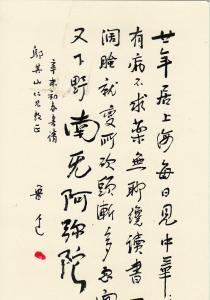 廿年居上海每日見中華
有病不求藥無聊纔讀書一
闊臉就變所砍頭漸多忽
又下野南无阿彌陀
辛未初春書請
鄔其山仁兄教正
魯迅